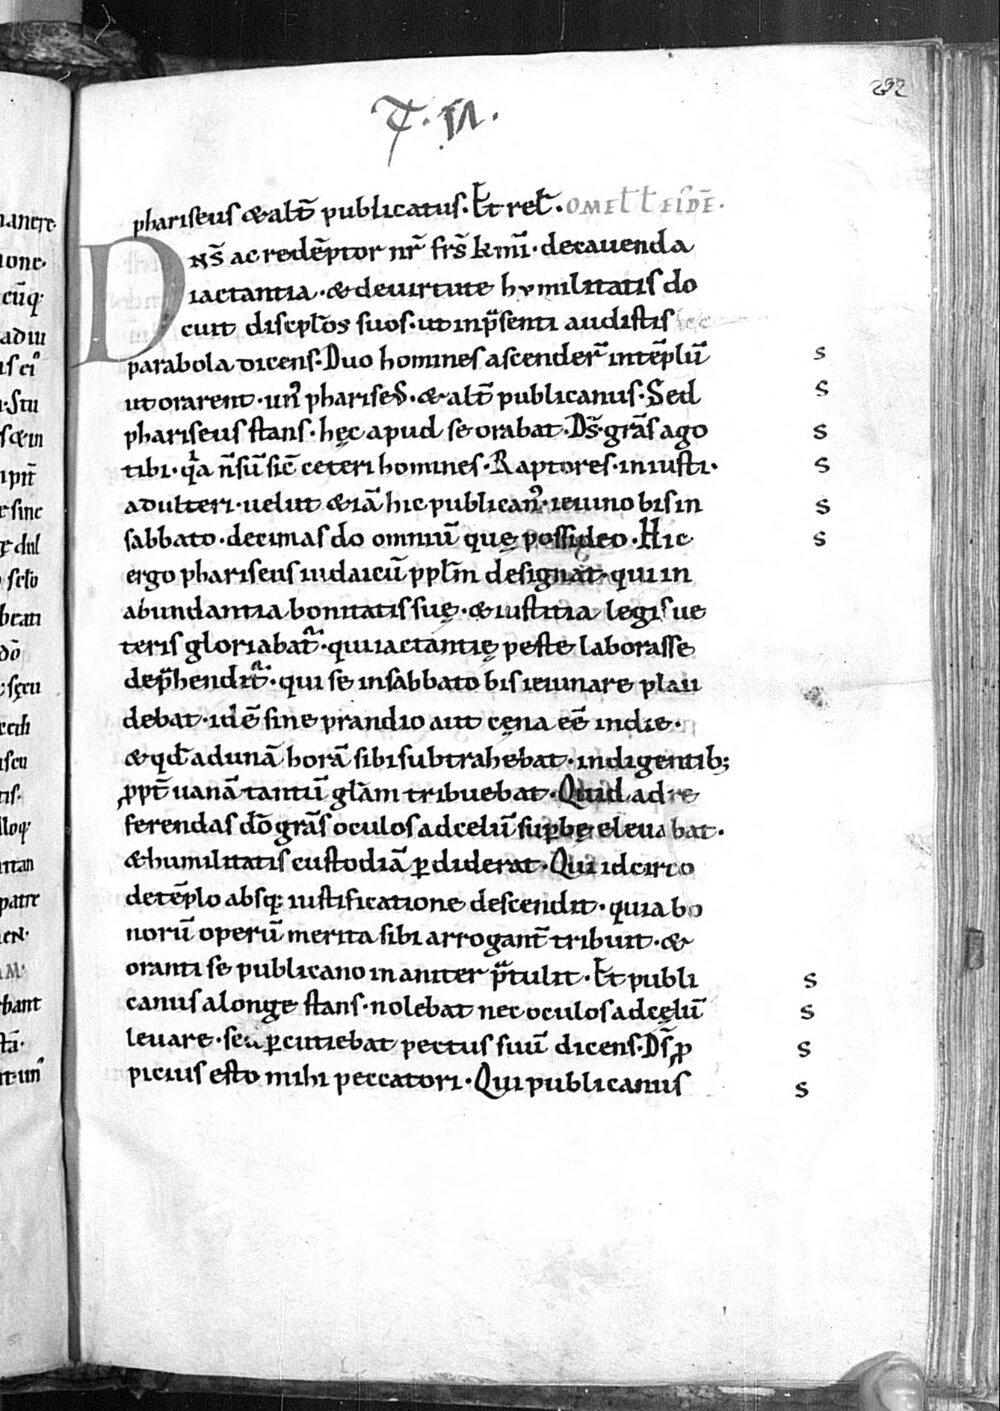 232
T. VI.
phariseus & alt̄ publicatus. Et rel̄. OMEL̄ L̄ EIDĒ.
Dn̄s ac redēptor nr̄ frs̄ k̄mi. de cauenda
iactantia. & de uirtute humilitatis do
cuit discplōs suos. ut in p̄senti audistis
parabola dicens. Duo homines ascender̄ in tēplū
ut orarent. un' phariseus. & alt̄ publicanus. Sed
phariseus stans. hęc apud se orabat. Ds̄. grās ago
tibi. qa n̄ sū sic̄ ceteri homines. Raptores. iniusti.
adulteri. uelut & iā hic publican'. ieiuno bis in
sabbato. decimas do omniū quę possideo. Hic
ergo phariseus iudaicū pplm̄ designat. qui in
abundantia bonitatis suę. & iustitia legis ue
teris gloriabat̄. qui iactantię peste laborasse
dep̄hendit̄. qui se in sabbato bis ieiunare plau
debat. idē sine prandio aut cęna eē in die.
& qd̄ ad unā horā sibi subtrahebat. indigentib;
ꝓpt̄ uanā tantū glam̄ tribuebat. Quid ad re
ferendas dō grās oculos ad celū supbę eleuabat.
& humilitatis custodiā ꝑdiderat. Qui idcirco
de tēplo absq; iustificatione descendit. quia bo
norū operū merita sibi arrogant̄ tribuit. &
oranti se publicano inaniter p̄tulit. Et publi
canus a longe stans. nolebat nec oculos ad cęlū
leuare. sed ꝑcutiebat pectus suū dicens. Ds̄ ꝓ
picius esto mihi peccatori. Qui publicanus
s
s
s
s
s
s
s
s
s
s